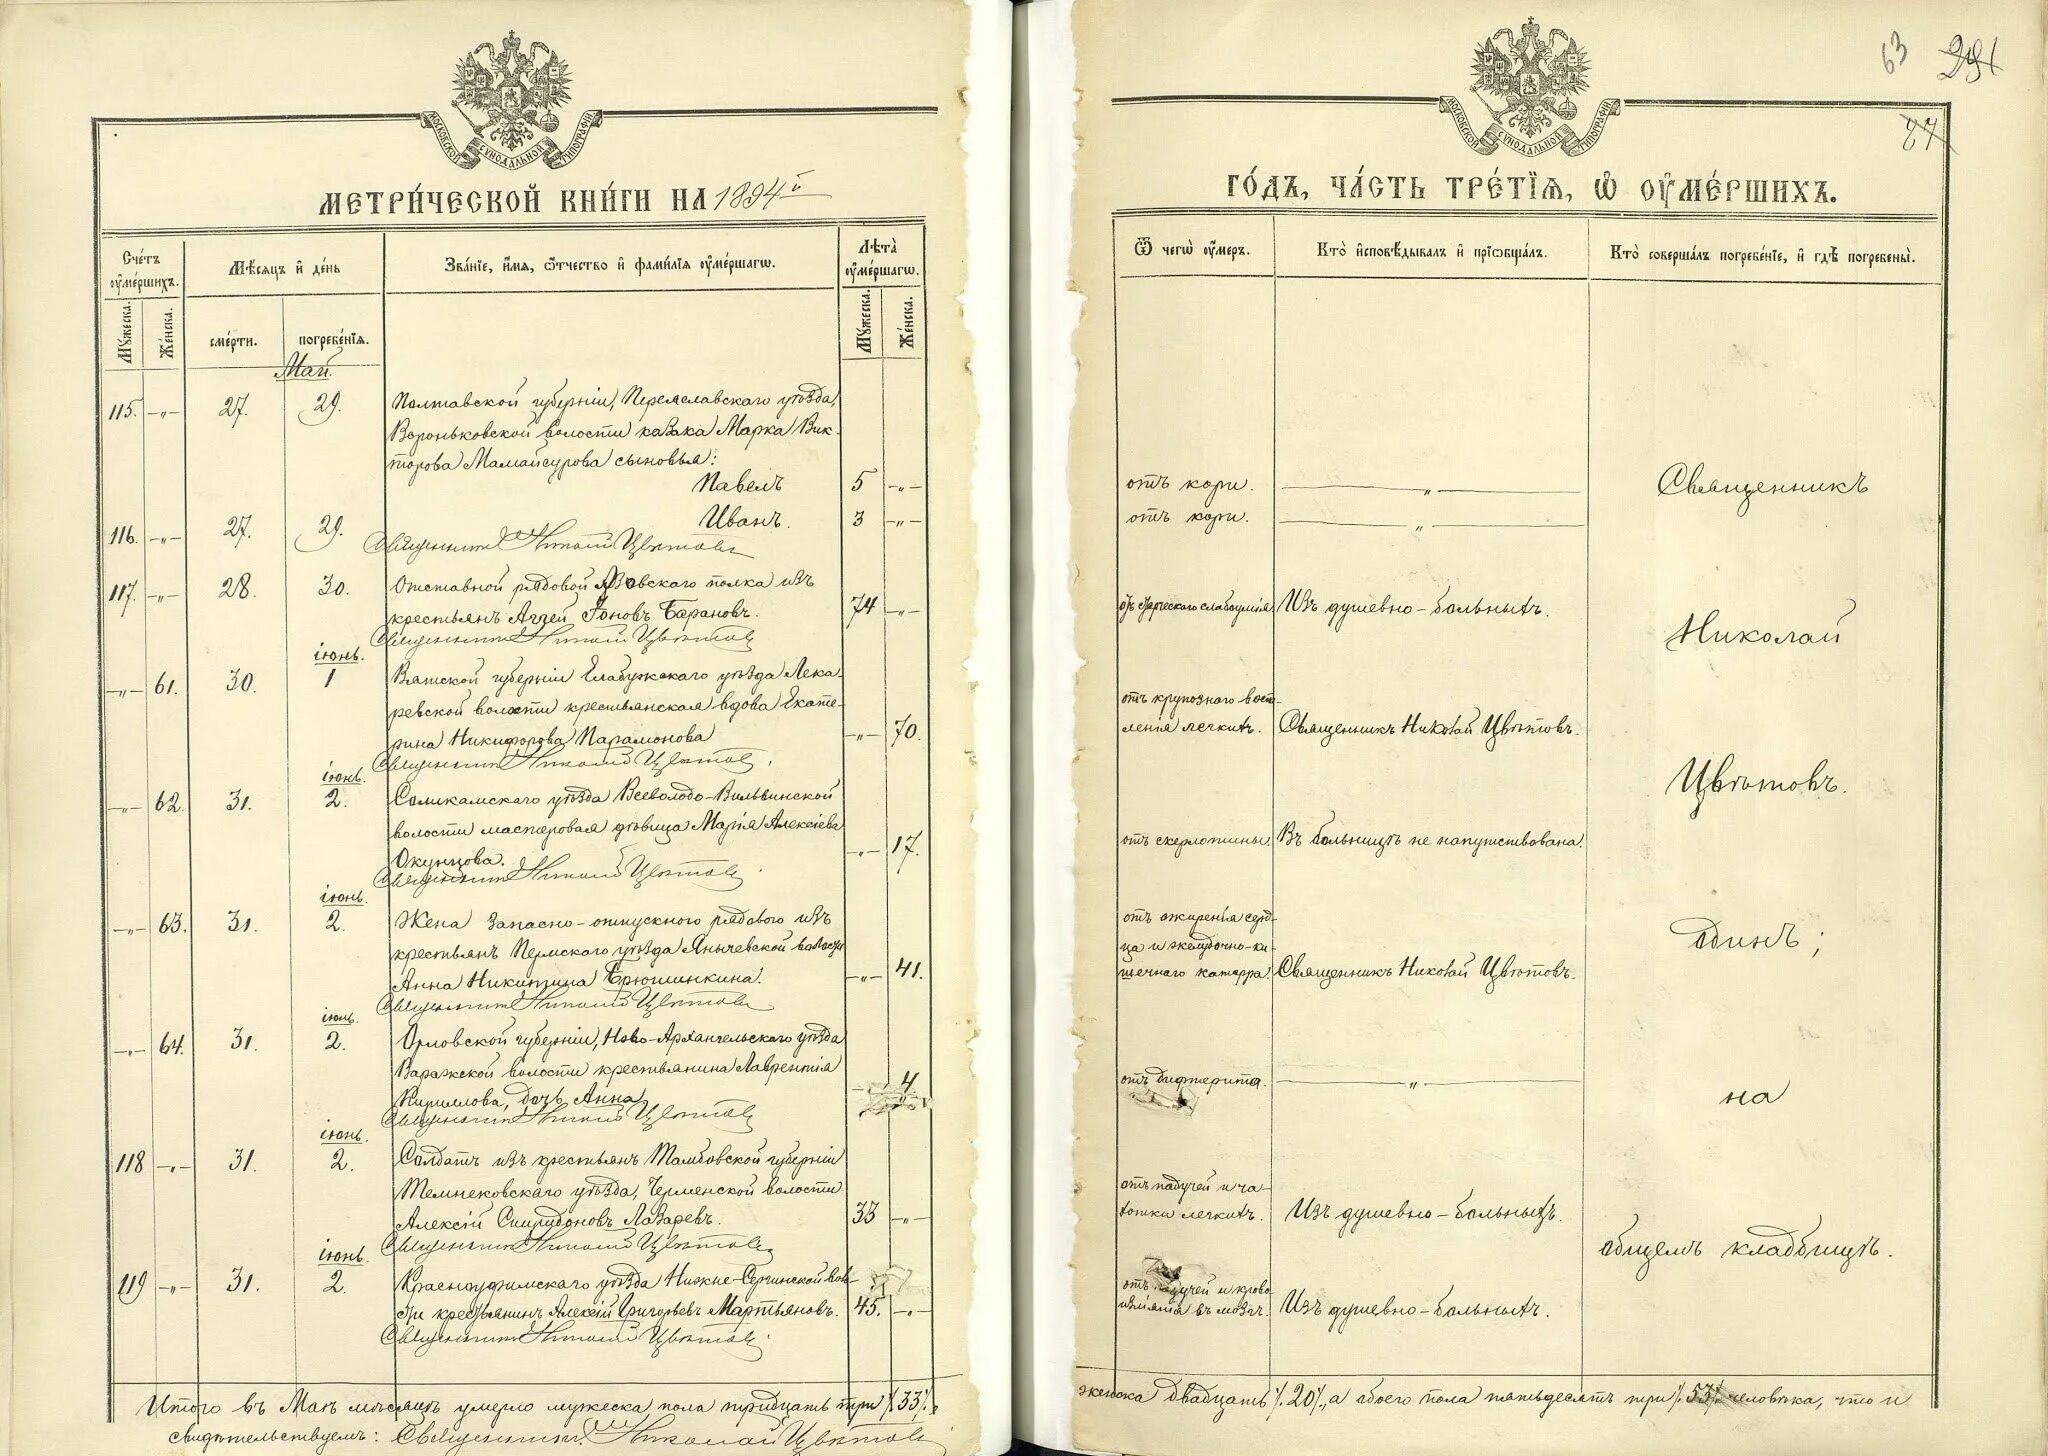 МОСКОВСКОЙ СѴНОДАЛЬНОЙ ТИПОГРАФІИ
МЕТРИ́ЧЕСКОЙ КНИ́ГИ НА 1894й
Счетъ ѹмершихъ.
Мѣсяцъ и день
Званіе, имя, ѿчество и фамилія ѹмершагѡ.
Лѣта ѹмершагѡ.
Мужеска.
Женска.
смерти.
погребенія.
Мужеска.
Женска.
Май.
115. —„— 27. 29. Полтавской губерніи, Переяславскаго уѣзда,
Вороньковской волости казака Марка Вик-
торова Мамайсурова сыновья:
Павелъ 5 —„—
Иванъ. 3 —„—
116. —„— 27. 29.
Священникъ Николай Цвѣтовъ
117. —„— 28. 30. Отставной рядовой Азовскаго полка изъ
крестьянъ Аггей Іоновъ Барановъ. 74 —„—
Священникъ Николай Цвѣтовъ
іюнь.
—„— 61. 30. 1 Вятской губерніи Елабужскаго уѣзда Лека-
ревской волости крестьянская вдова Екате-
рина Никифорова Парамонова —„— 70.
Священникъ Николай Цвѣтовъ.
іюнь.
—„— 62. 31. 2. Соликамскаго уѣзда Всеволодо-Вильвинской
волости мастеровая дѣвица Марія Алексіева
Окунцова. —„— 17.
Священникъ Николай Цвѣтовъ
іюнь.
—„— 63. 31. 2. Жена запасно-отпускного рядового изъ
крестьянъ Пермскаго уѣзда Янычевской волости
Анна Никитина Брюшинкина. —„— 41.
Священникъ Николай Цвѣтовъ
іюнь.
—„— 64. 31. 2. Орловской губерніи, Ново-Архангельскаго уѣзда
Варажской волости крестьянина Лаврентія
Кириллова, дочь Анна 4
Священникъ Николай Цвѣтовъ
іюнь.
118 —„— 31. 2. Солдатъ изъ крестьянъ Тамбовской губерніи
Темнековскаго уѣзда, Черменской волости
Алексій Спиридоновъ Лазаревъ. 33 —„—
Священникъ Николай Цвѣтовъ
іюнь.
119 —„— 31. 2. Красноуфимскаго уѣзда Нижне-Сергинской воло-
сти крестьянинъ Алексій Григорьевъ Мартьяновъ. 45. —„—
Священникъ Николай Цвѣтовъ.
Итого въ Маѣ мѣсяцѣ умерло мужеска пола тридцать три /33/.
свидѣтельствуемъ: Священникъ Николай Цвѣтовъ
63 291
87
МОСКОВСКОЙ СѴНОДАЛЬНОЙ ТИПОГРАФІИ
ГО́ДЪ, ЧА́СТЬ ТРЕ́ТІЯ, Ѡ ОУМЕ́РШИХЪ.
Ѿ чегѡ ѹмеръ.
Кто исповѣдывалъ и пріѡбщалъ.
Кто совершалъ погребеніе, и гдѣ погребены.
отъ кори. —„— Священникъ
отъ кори. —„—
отъ старческаго слабоумія Изъ душевно-больныхъ. Николай
отъ крупознаго воспа-
ленія легкихъ. Священникъ Николай Цвѣтовъ.
Цвѣтовъ.
отъ скерлотины. Въ больницѣ не напутствована.
отъ ожиренія серд-
ца и желудочно-ки-
шечнаго катарра. Священникъ Николай Цвѣтовъ.
одинъ;
отъ дифтерита. —„— на
отъ падучей и ча-
хотки легкихъ. Изъ душевно-больныхъ.
общемъ кладбищѣ.
отъ падучей и крово-
изліянія въ мозгъ. Изъ душевно-больныхъ.
женска двадцать /20/, а обоего пола пятьдесятъ три /53/ человѣка, что и